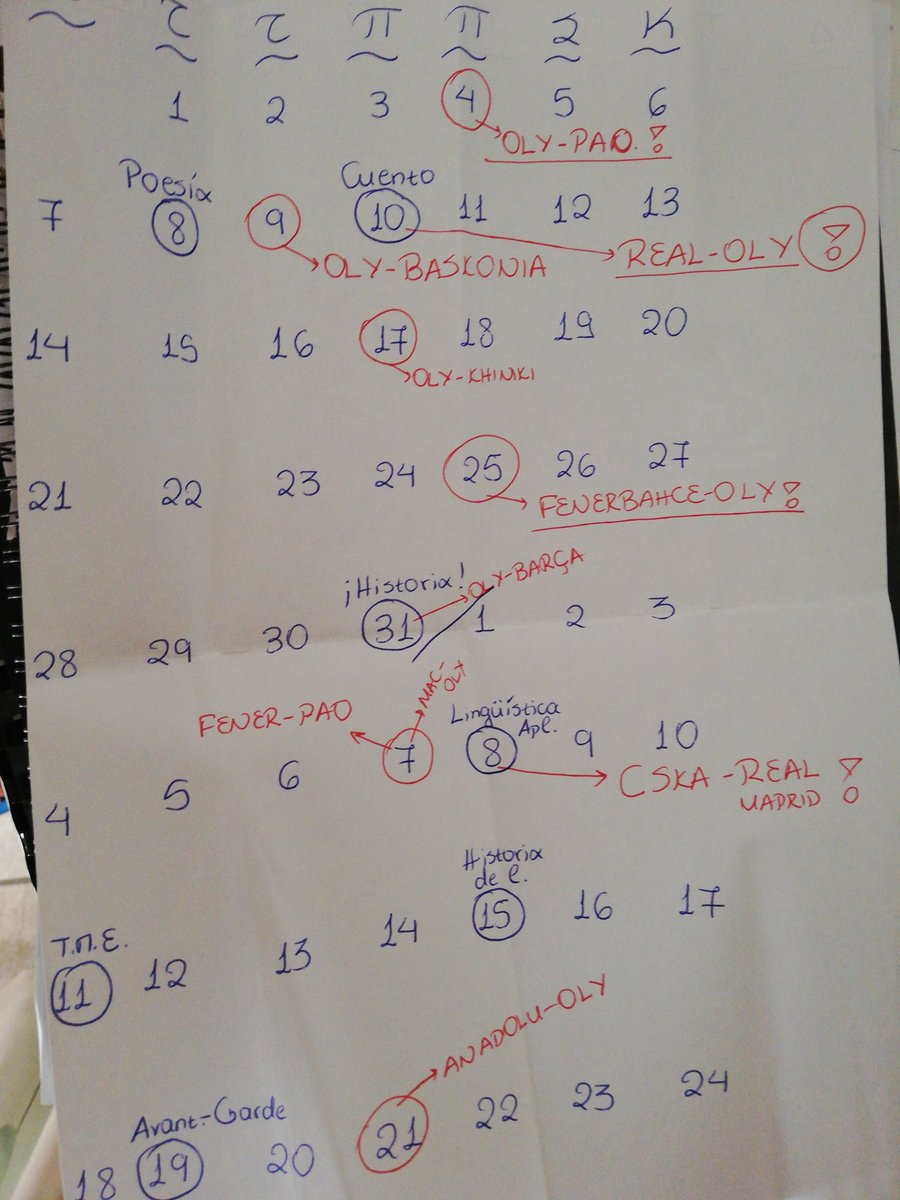 Τ Τ Π Π Σ Κ
1 2 3 4 5 6
OLY-PAO !
Poesía Cuento
7 8 9 10 11 12 13
OLY-BASKONIA REAL-OLY !
14 15 16 17 18 19 20
OLY-KHIMKI
21 22 23 24 25 26 27
FENERBAHCE-OLY !
¡Historia! OLY-BARÇA
28 29 30 31 1 2 3
FENER-PAO MAC-
OLY
Lingüística
Apl.
4 5 6 7 8 9 10
CSKA-REAL !
MADRID
Historia
de l.
Τ.Π.Ε.
11 12 13 14 15 16 17
ANADOLU-OLY
Avant-Garde
18 19 20 21 22 23 24